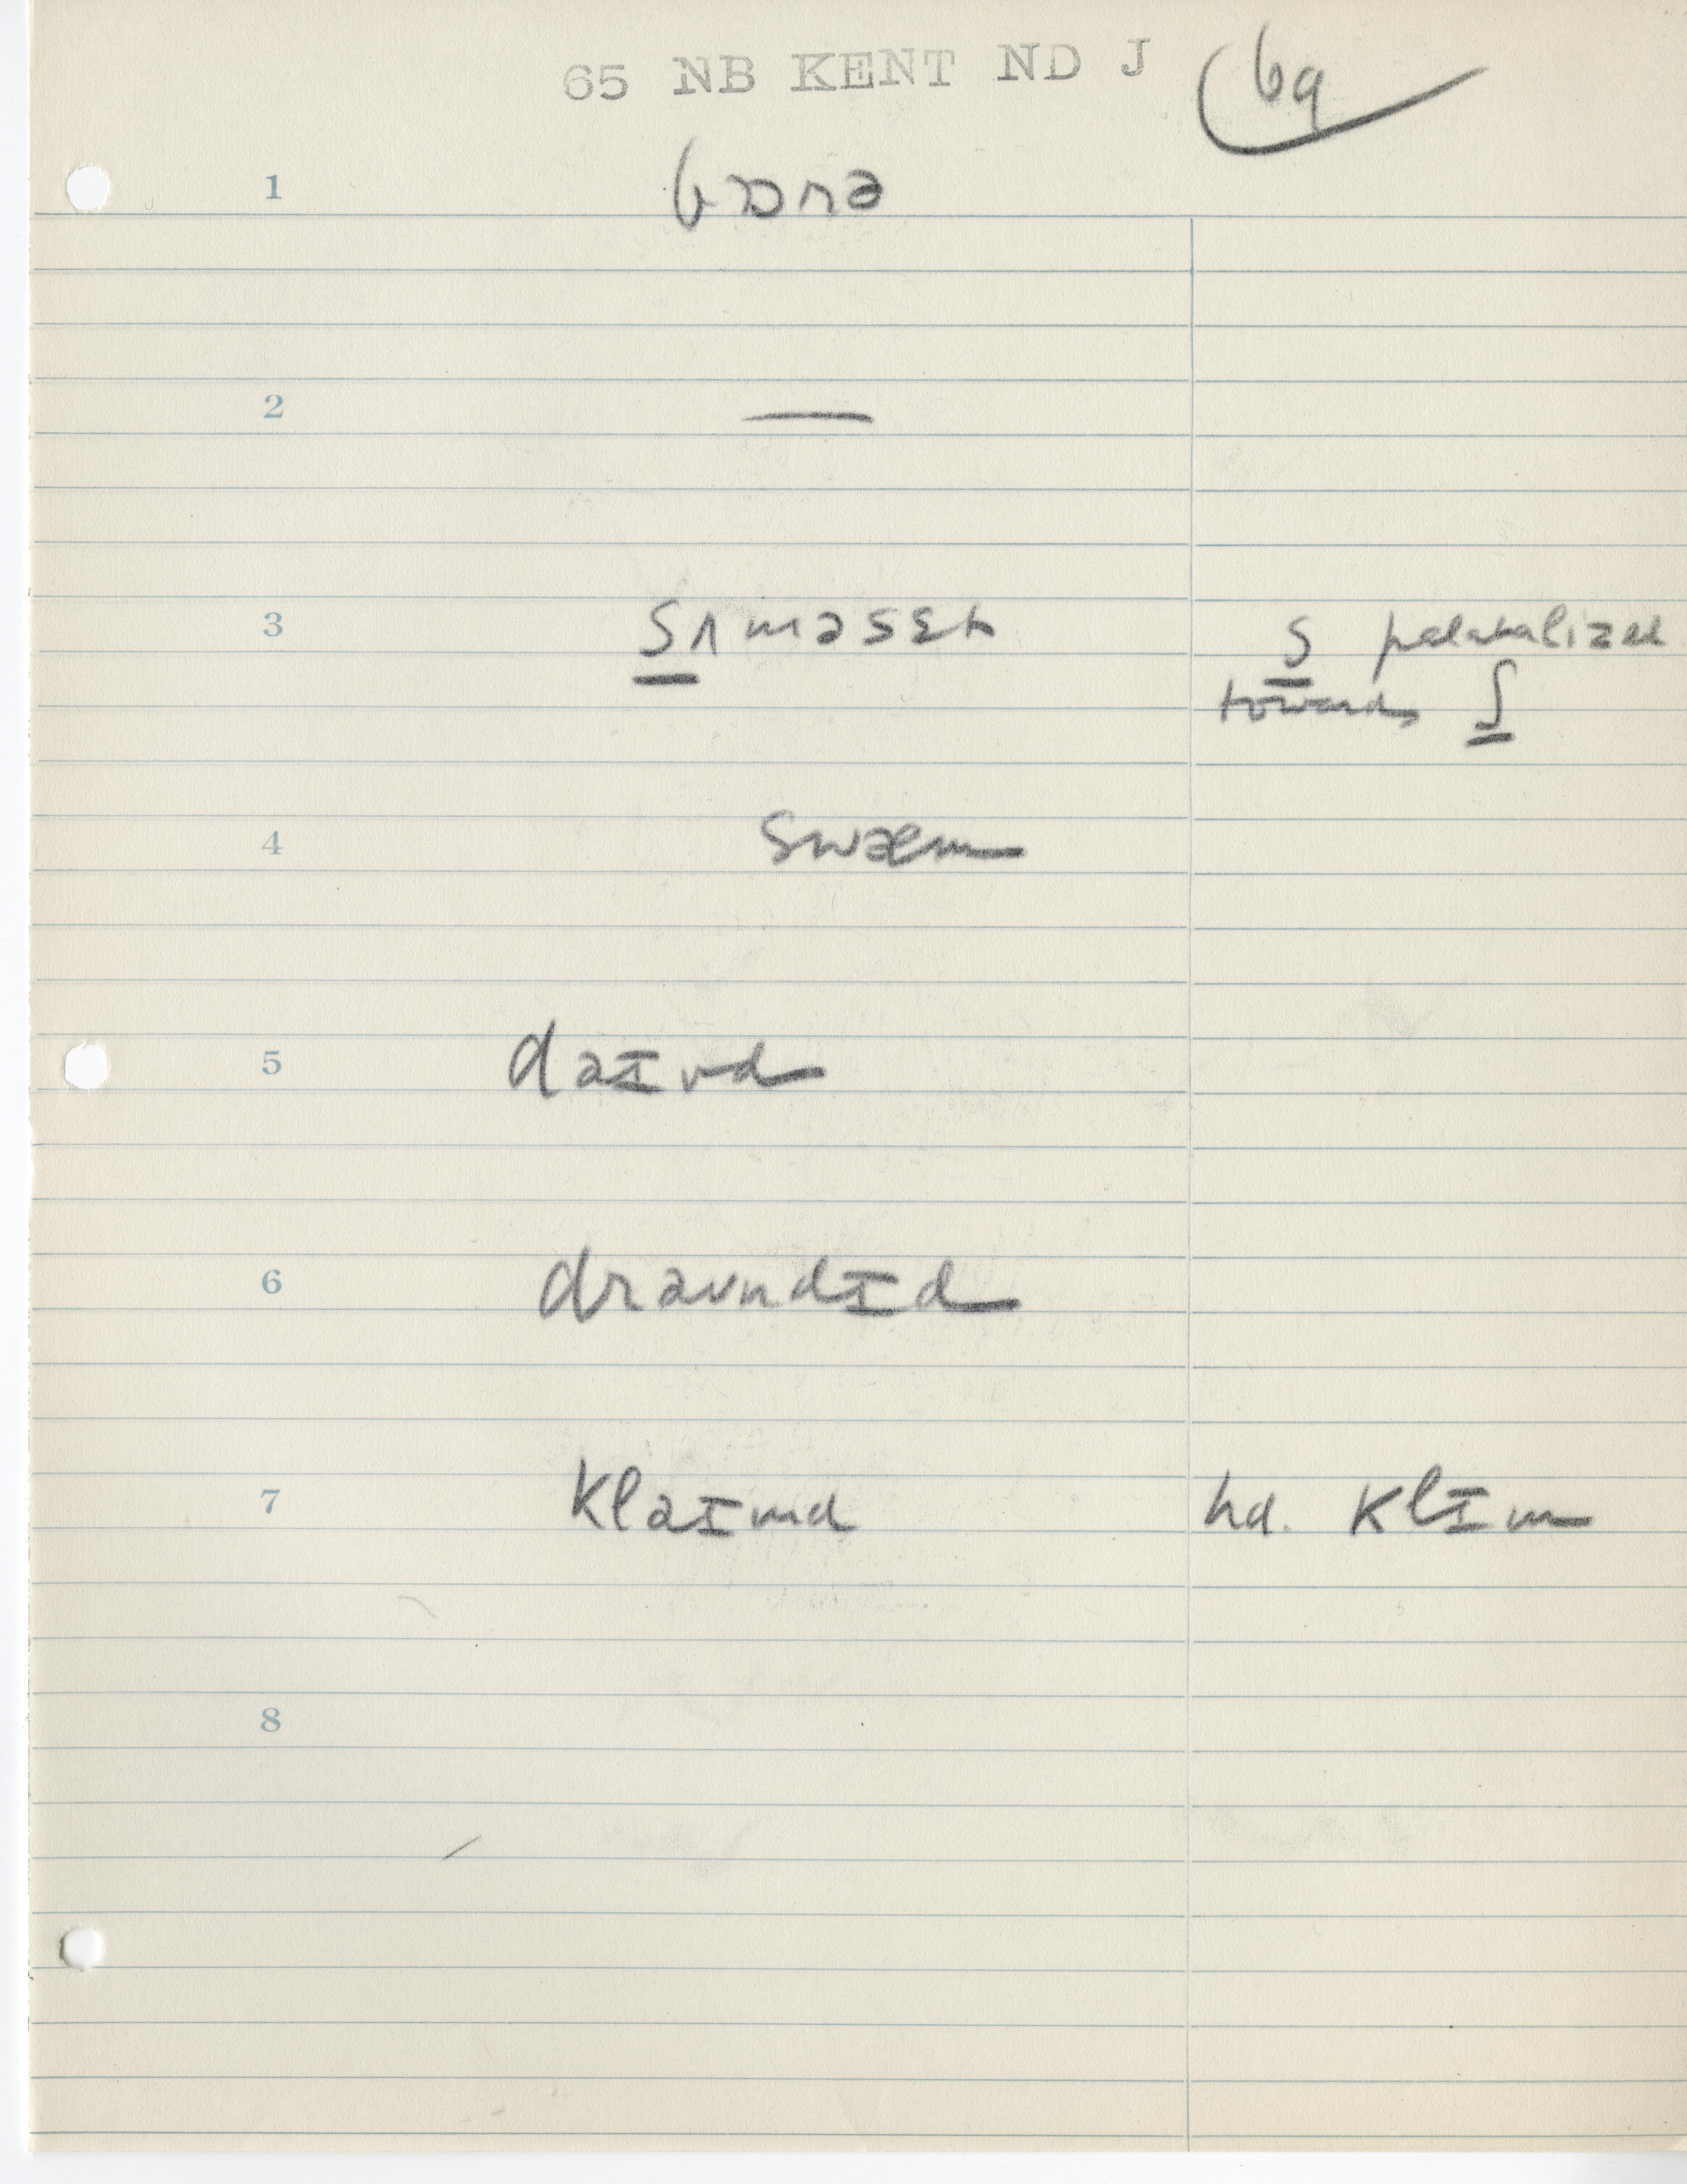 65 NB KENT ND J 69
1 bɔɒrə
2 —
3 sʌməsɛt s palatalized
towards ʃ
4 swæm
5 daɪvd
6 draundɪd
7 klaɪmd hd. klɪm
8